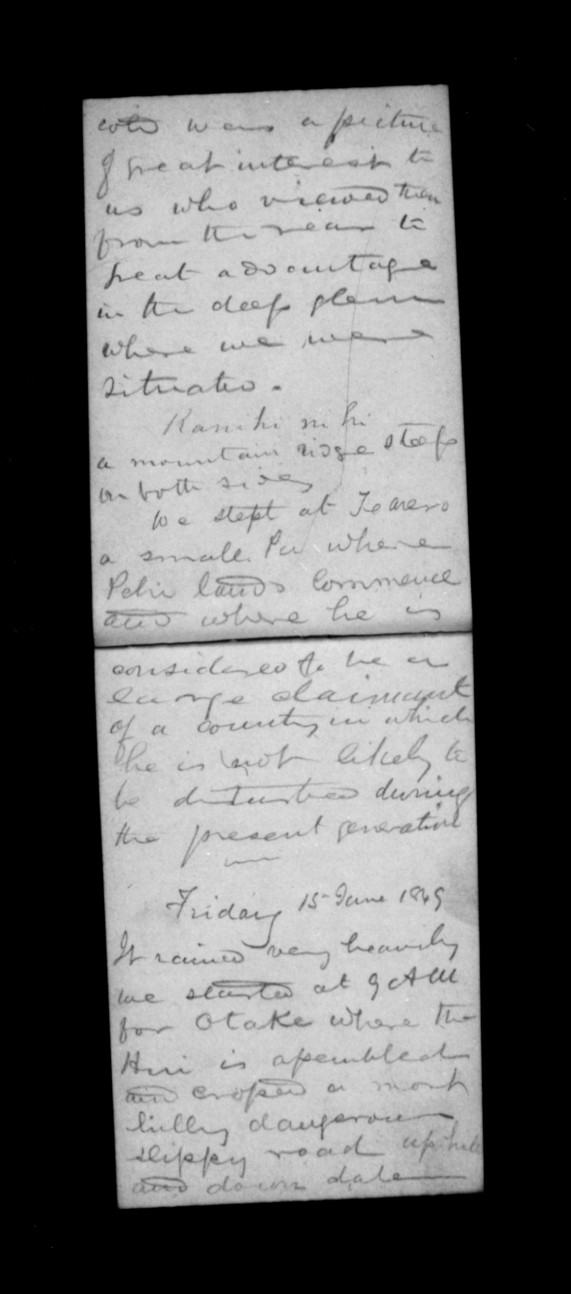 was a picture
of great interest to
us who viewed them
from the rear to
great advantage
in the deep glenn
where we were
situated.
a mountain ridge steep
on both sides
We slept at
a small Pa where
lands commence
and where he is
considered to be a
large claimant
of a country in which
he is not likely to
be disturbed during
the present generation
Friday 15 June 1849
It rained very heavily
we started at 9 AM
for Otake where the
Hui is assembled
and crossed a most
hilly dangerous
slippy road up hill
and down dale